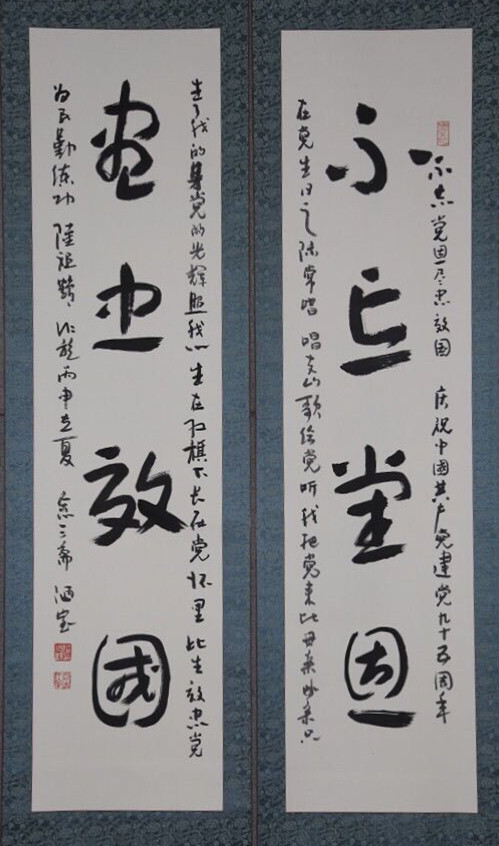 不忘党恩尽忠效国 庆祝中國共产党建党九十五周年
不忘党恩
在党生日之际常唱 唱支山歌给党听我把党来比母亲母亲只
生了我的身党的光辉照我心 生在红旗下长在党怀里 此生效忠党
盡忠效國
为民勤练功 陸祖 龙丙申立夏 三斋